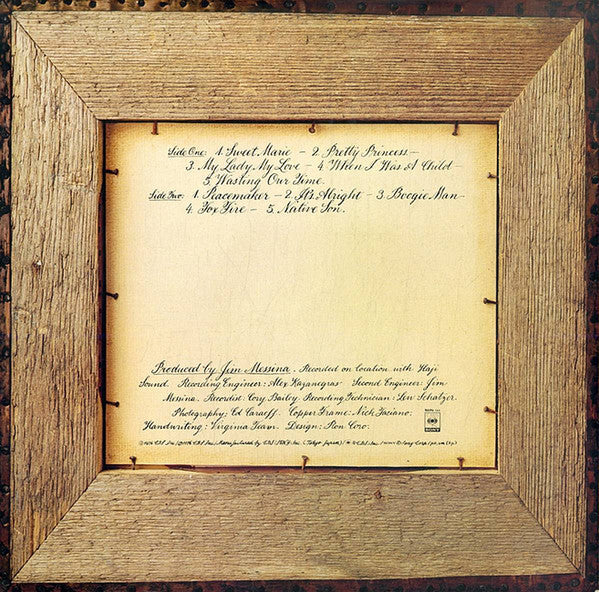 Side One: 1. Sweet Marie – 2. Pretty Princess –
3. My Lady, My Love – 4. When I Was A Child
5. Wasting Our Time
Side Two: 1. Peacemaker – 2. It's Alright – 3. Boogie Man –
4. Fox Fire – 5. Native Son.
Produced by Jim Messina. Recorded on Location with Haji
Sound. Recording Engineer: Alex Kazanegras Second Engineer: Jim
Messina. Recordist: Cory Bailey Recording Technician: Lew Schatzer.
Photography: Ed Caraeff. Copper Frame: Nick Fasciano.
Handwriting: Virginia Team. Design: Ron Coro.
CBS Inc.
SONY